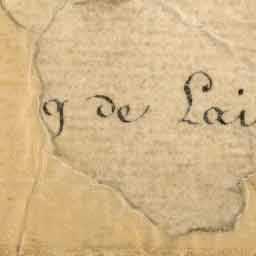 g de Lai